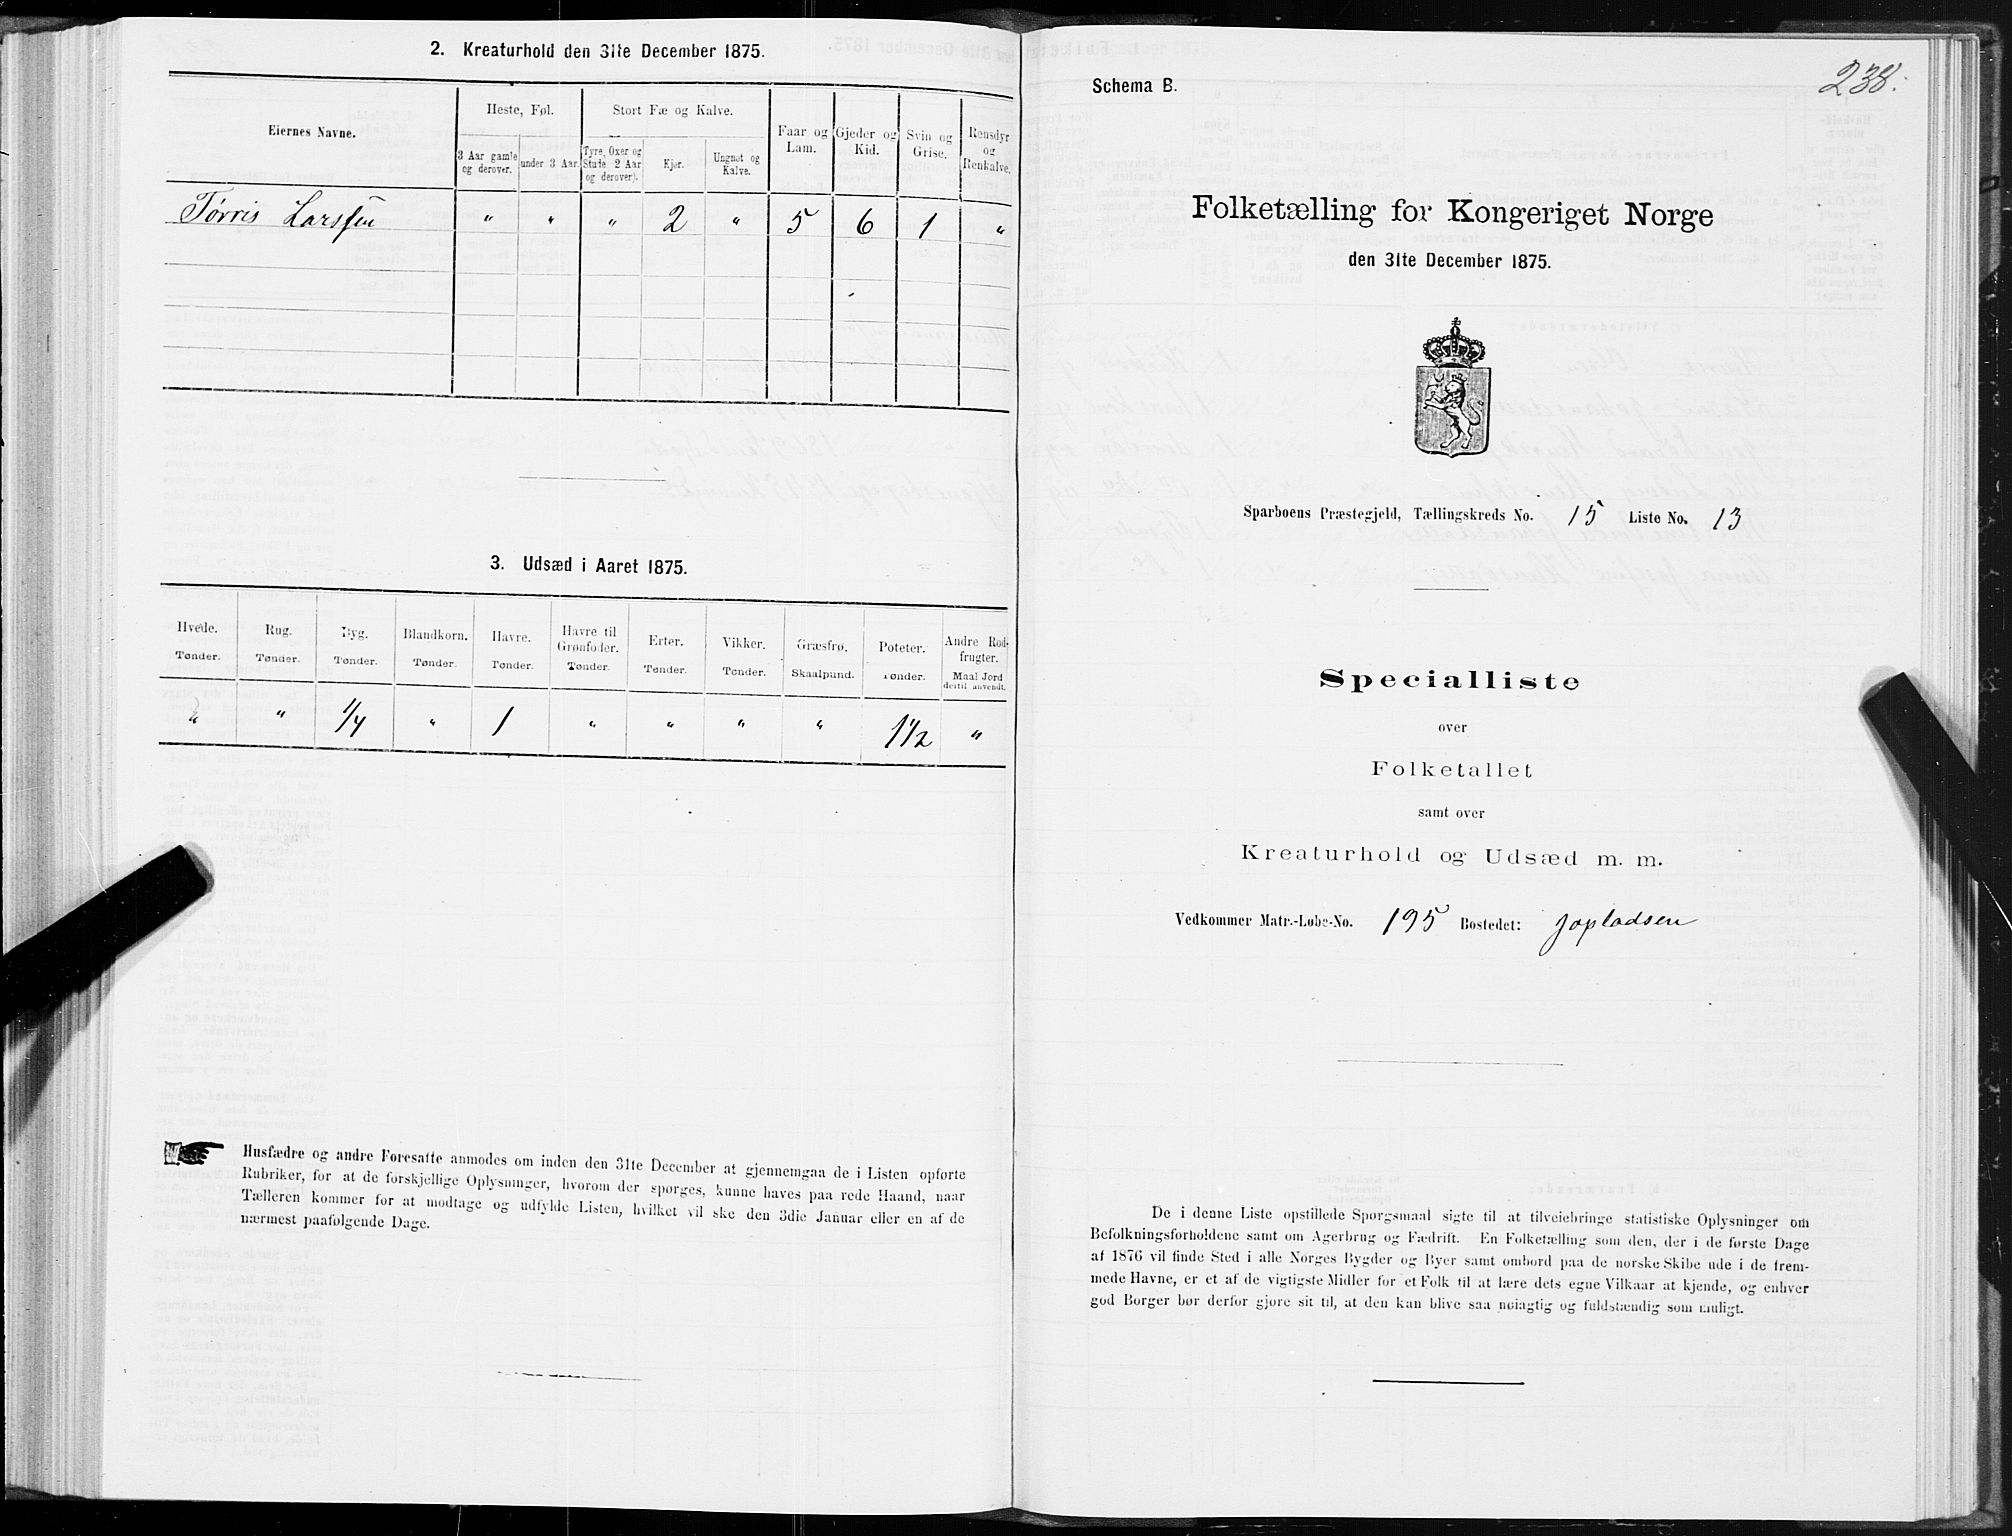 2. Kreaturhold den 31te December 1875.
Eiernes Navne.
Heste, Føl.
Stort Fæ og Kalve.
Faar og Lam.
Gjeder og Kid.
Svin og Grise.
Rensdyr og Renkalve.
3 Aar gamle og derover.
under 3 Aar.
Tyre, Oxer og Stude 2 Aar og derover).
Kjør.
Ungnøt og Kalve.
Tørris Larssen " " " 2 " 5 6 1 "
3. Udsæd i Aaret 1875.
Hvede. Rug. Byg. Blandkorn. Havre. Havre til Grønfoder. Erter. Vikker. Græsfrø. Poteter. Andre Rodfrugter.
Tønder. Tønder. Tønder. Tønder. Tønder. Tønder. Tønder. Tønder. Skaalpund. Tønder. Maal Jord dertil anvendt.
" " 1/4 " 1 " " " " 1 1/2 "
Husfædre og andre Foresatte anmodes om inden den 31te December at gjennemgaa de i Listen opførte
Rubriker, for at de forskjellige Oplysninger, hvorom der spørges, kunne haves paa rede Haand, naar
Tælleren kommer for at modtage og udfylde Listen, hvilket vil ske den 3die Januar eller en af de
nærmest paafølgende Dage.
238.
Schema B.
Folketælling for Kongeriget Norge
den 31te December 1875.
Sparboens Præstegjeld, Tællingskreds No. 15 Liste No. 13
Specialliste
over
Folketallet
samt over
Kreaturhold og Udsæd m. m.
Vedkommer Matr.-Løbe-No. 195 Bostedet: Jopladsen
De i denne Liste opstillede Spørgsmaal sigte til at tilveiebringe statistiske Oplysninger om
Befolkningsforholdene samt om Agerbrug og Fædrift. En Folketælling som den, der i de første Dage
af 1876 vil finde Sted i alle Norges Bygder og Byer samt ombord paa de norske Skibe ude i de frem-
mede Havne, er et af de vigtigste Midler for et Folk til at lære dets egne Vilkaar at kjende, og enhver
god Borger bør derfor gjøre sit til, at den kan blive saa nøiagtig og fuldstændig som muligt.